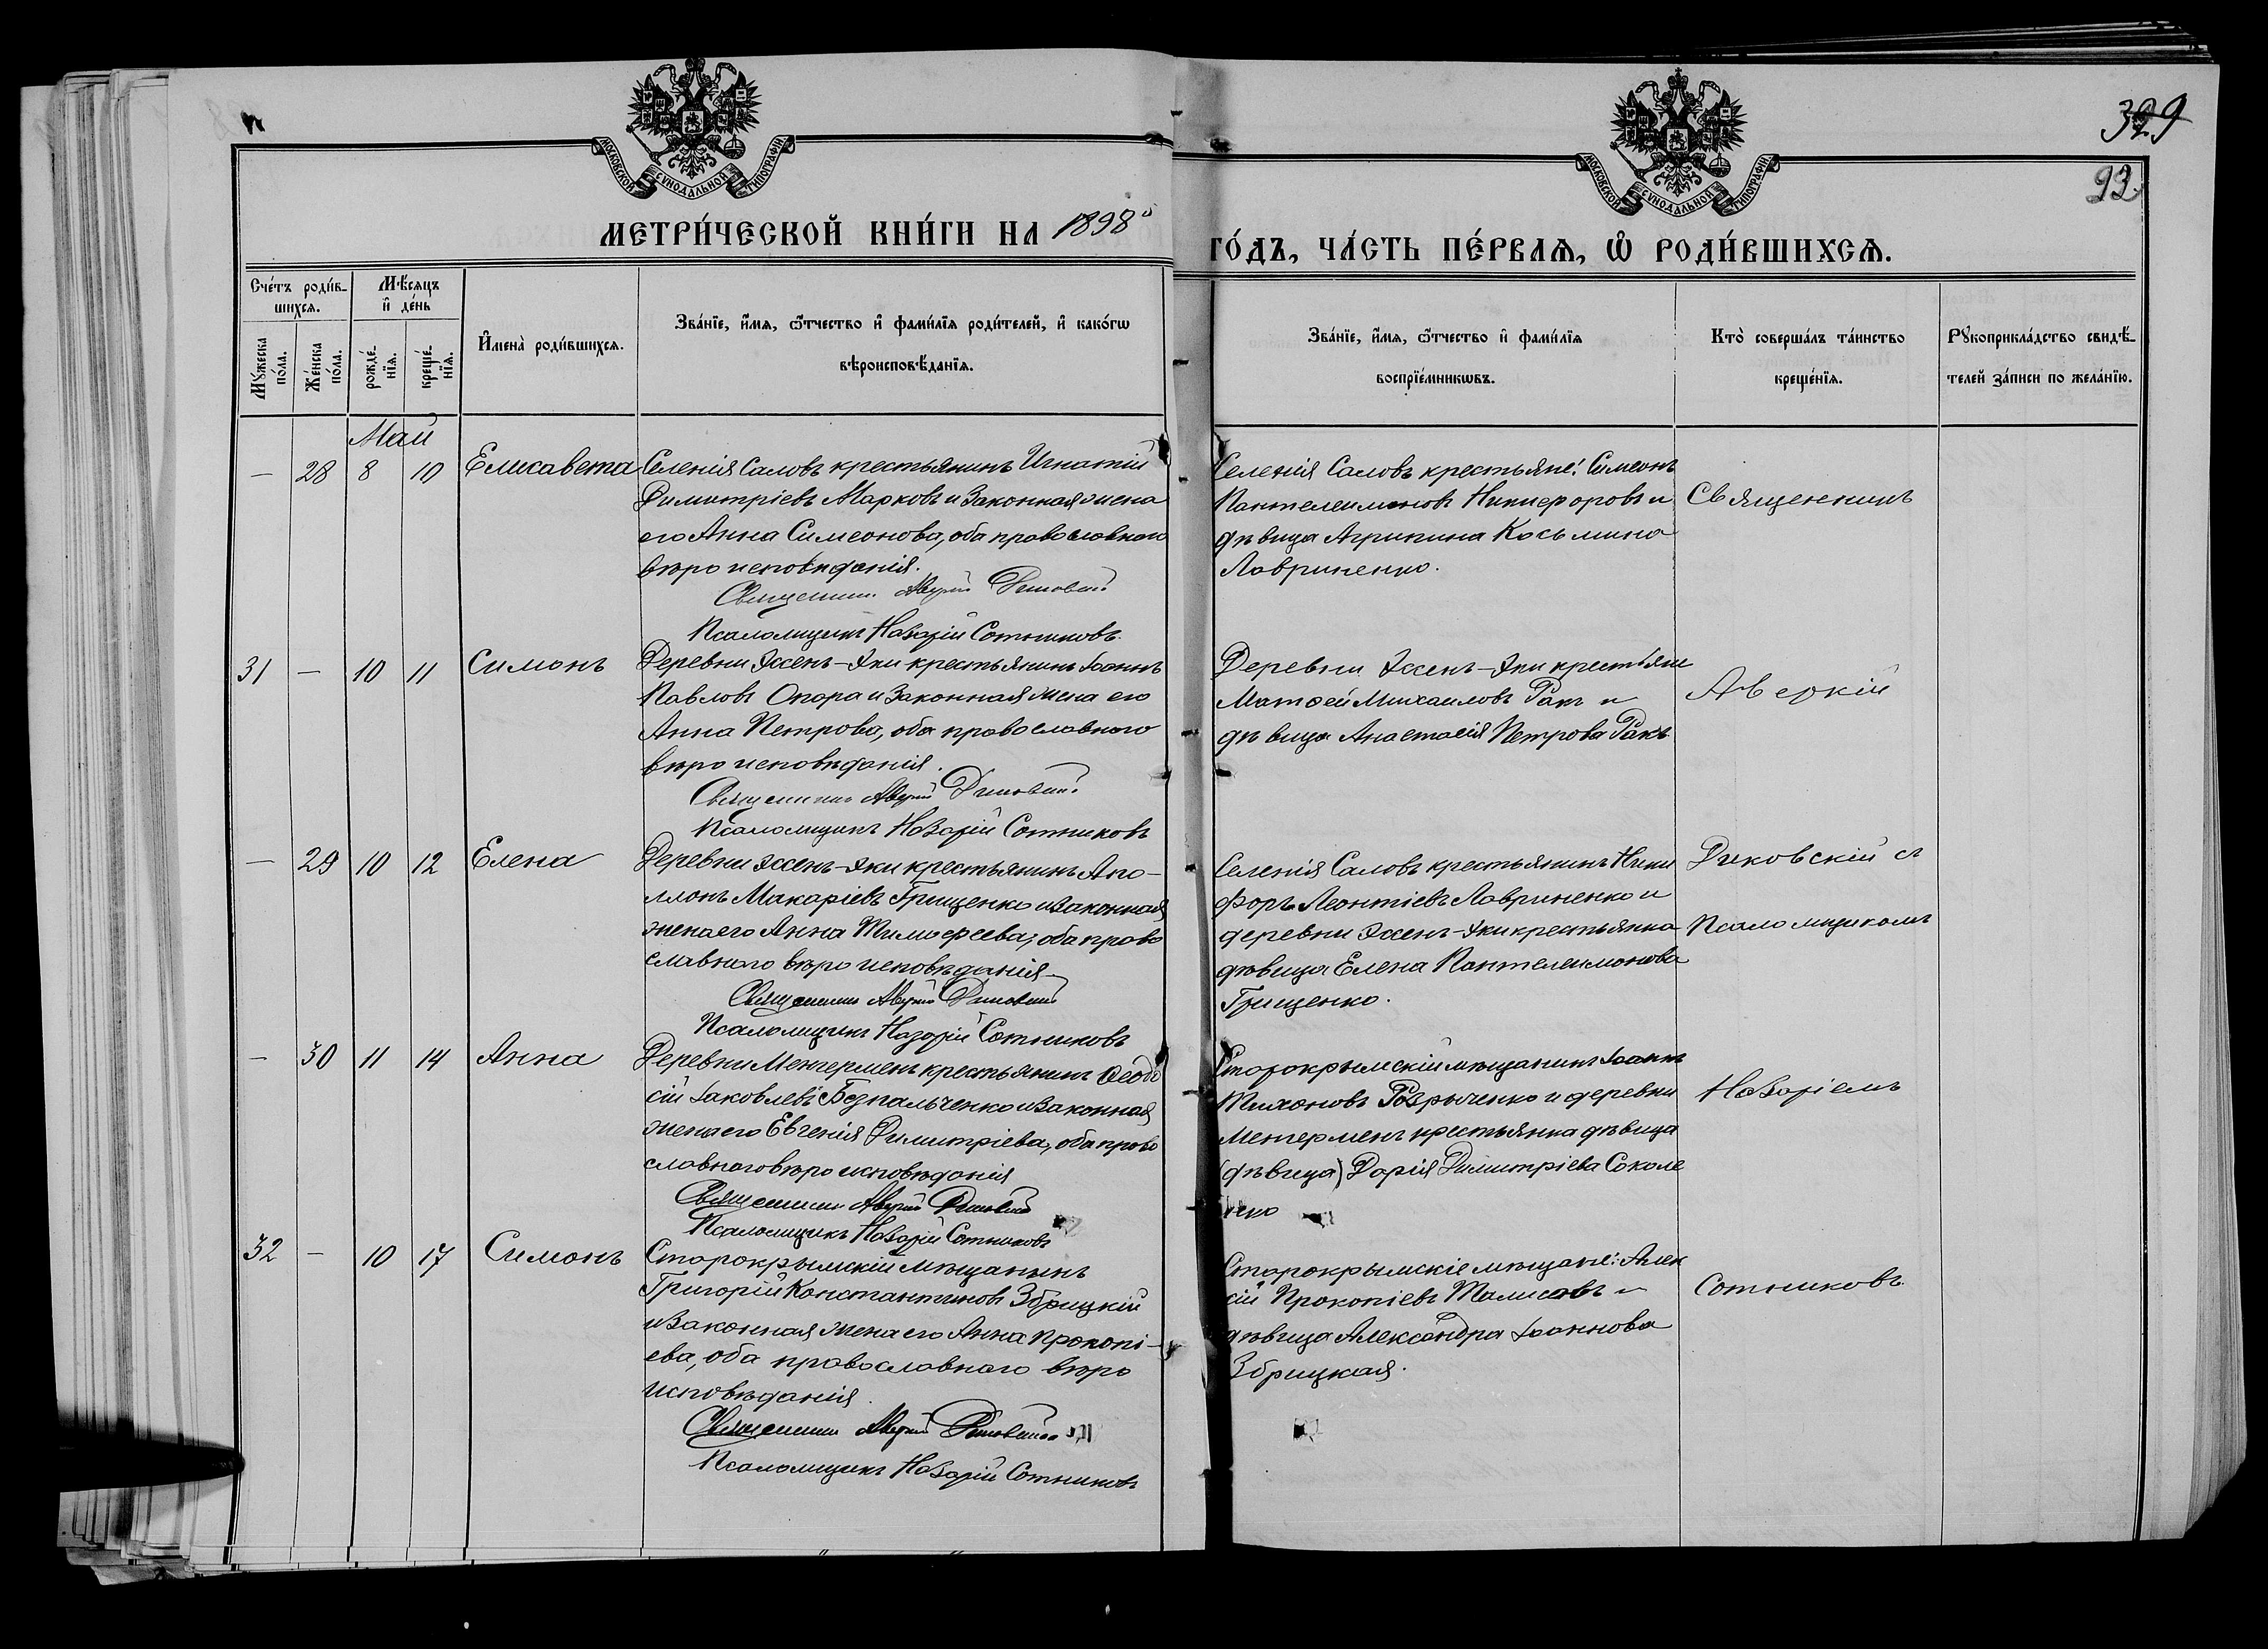 329
93.
МОСКОВСКОЙ СУНОДАЛЬНОЙ ТИПОГРАФІИ
МОСКОВСКОЙ СУНОДАЛЬНОЙ ТИПОГРАФІИ
МЕТРИ́ЧЕСКОЙ КНИ́ГИ НА 1898й ГО́ДЪ, ЧА́СТЬ ПЕ́РВАѦ, Ѡ РОДИ́ВШИХСѦ.
Сче́тъ роди́в-
шихсѧ.
Мꙋ́жеска по́ла.
Же́нска по́ла.
Мѣ́сѧцъ
и де́нь
рожде́-
нїѧ.
креще́-
нїѧ.
И҆мена̀ роди́вшихсѧ.
Зва́нїе, и҆́мѧ, ѻ҆́тчество и҆ фами́лїѧ роди́телей, и҆ како́гѡ
вѣроисповѣ́данїѧ.
Зва́нїе, и҆́мѧ, ѻ҆́тчество и҆ фами́лїѧ
воспрїе́мникѡвъ.
Кто̀ соверша́лъ та́инство
креще́нїѧ.
Рꙋкоприкла́дство свидѣ́-
телей за́писи по жела́нїю.
Май
— 28 8 10 Елисавета
Селенія Саловъ крестьянинъ Игнатій
Димитріевъ Марковъ и законная жена
его Анна Симеонова, оба православнаго
вѣроисповѣданія.
Священникъ Аверкій Диковскій
Псаломщикъ Назарій Сотниковъ
Селенія Саловъ крестьяне: Симеонъ
Пантелеимоновъ Никифоровъ и
дѣвица Агрипина Косьмина
Лавриненко.
Священникъ
31 — 10 11 Симонъ
Деревни Эссенъ-Эки крестьянинъ Іоаннъ
Павловъ Опора и законная жена его
Анна Петрова, оба православнаго
вѣроисповѣданія.
Священникъ Аверкій Диковскій
Псаломщикъ Назарій Сотниковъ
Деревни Эссенъ-Эки крестьяне
Матѳей Михаиловъ Ракъ и
дѣвица Анастасія Петрова Ракъ
Аверкій
— 29 10 12 Елена
Деревни Эссенъ-Эки крестьянинъ Апо-
ллонъ Макаріевъ Грищенко и законная
жена его Анна Тимофеева, оба право
славнаго вѣроисповѣданія
Священникъ Аверкій Диковскій
Псаломщикъ Назарій Сотниковъ
Селенія Саловъ крестьянинъ Ники
форъ Леонтіевъ Лавриненко и
деревни Эссенъ-Эки крестьянка
дѣвица Елена Пантелеимонова
Грищенко.
Диковскій съ
Псаломщикомъ
— 30 11 14 Анна
Деревни Менгерменъ крестьянинъ Ѳеодо
сій Іаковлевъ Безпальченко и законная
жена его Евгенія Димитріева, оба право
славнаго вѣроисповѣданія
Священникъ Аверкій Диковскій
Псаломщикъ Назарій Сотниковъ
Старокрымскій мѣщанинъ Іоаннъ
Тихоновъ и деревни
Менгерменъ крестьянка дѣвица
(дѣвица) Дарія Димитріева Соколе
нко
Назаріемъ
32 — 10 17 Симонъ
Старокрымскій мѣщанинъ
Григорій Константиновъ Збрицкій
и законная жена его Анна Прокопі-
ева, оба православнаго вѣро
исповѣданія.
Священникъ Аверкій Диковскій
Псаломщикъ Назарій Сотниковъ
Старокрымскіе мѣщане: Алек
сій Прокопіевъ и
дѣвица Александра Іоаннова
Збрицкая.
Сотниковъ